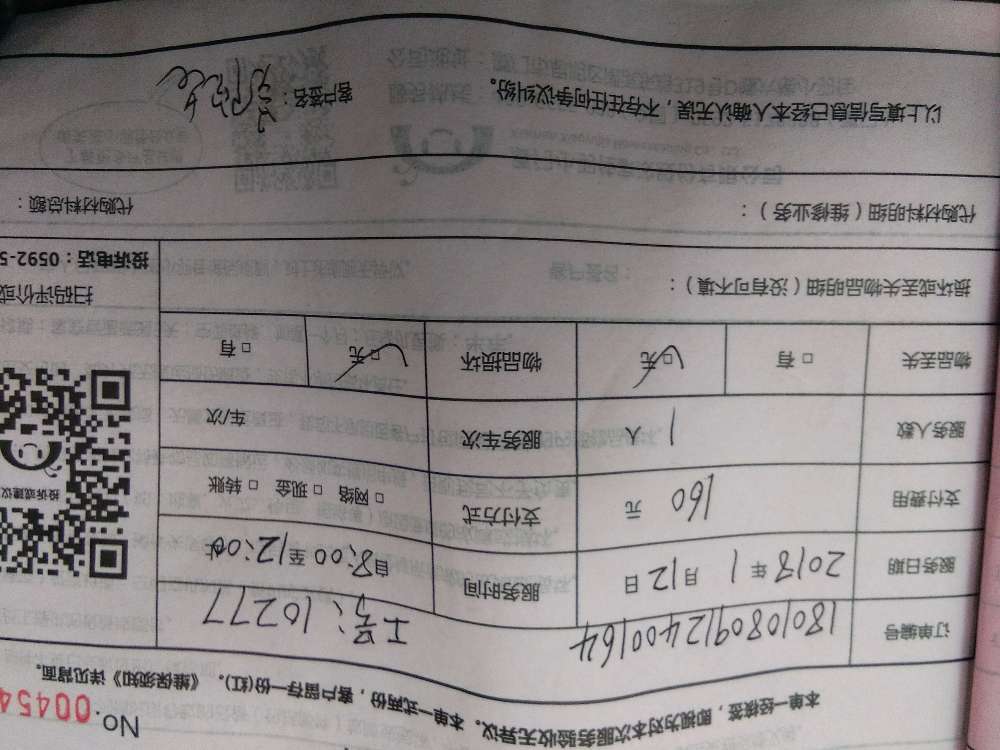 No. 00454
本单一经核签，即视为对本次服务验收无异议。本单一式两份，客户留存一份(红)。《维保须知》详见背面。
订单编号 180108091240016４ 工号：10277
服务日期 2018年1月12日 服务时间 自8:00至12:00止
支付费用 160 元 支付方式 □ 网络 □ 现金 □ 转账
服务人数 1 人 服务车次 车/次
物品丢失 □ 有 □ 无 物品损坏 □ 无 □ 有
投诉或建议
扫码评价或
投诉电话：0592-5
损坏或丢失物品明细（没有可不填）：
代购材料明细（维修业务）： 代购材料总额：
以上填写信息已经本人确认无误，不存在任何争议纠纷。 客户签名：